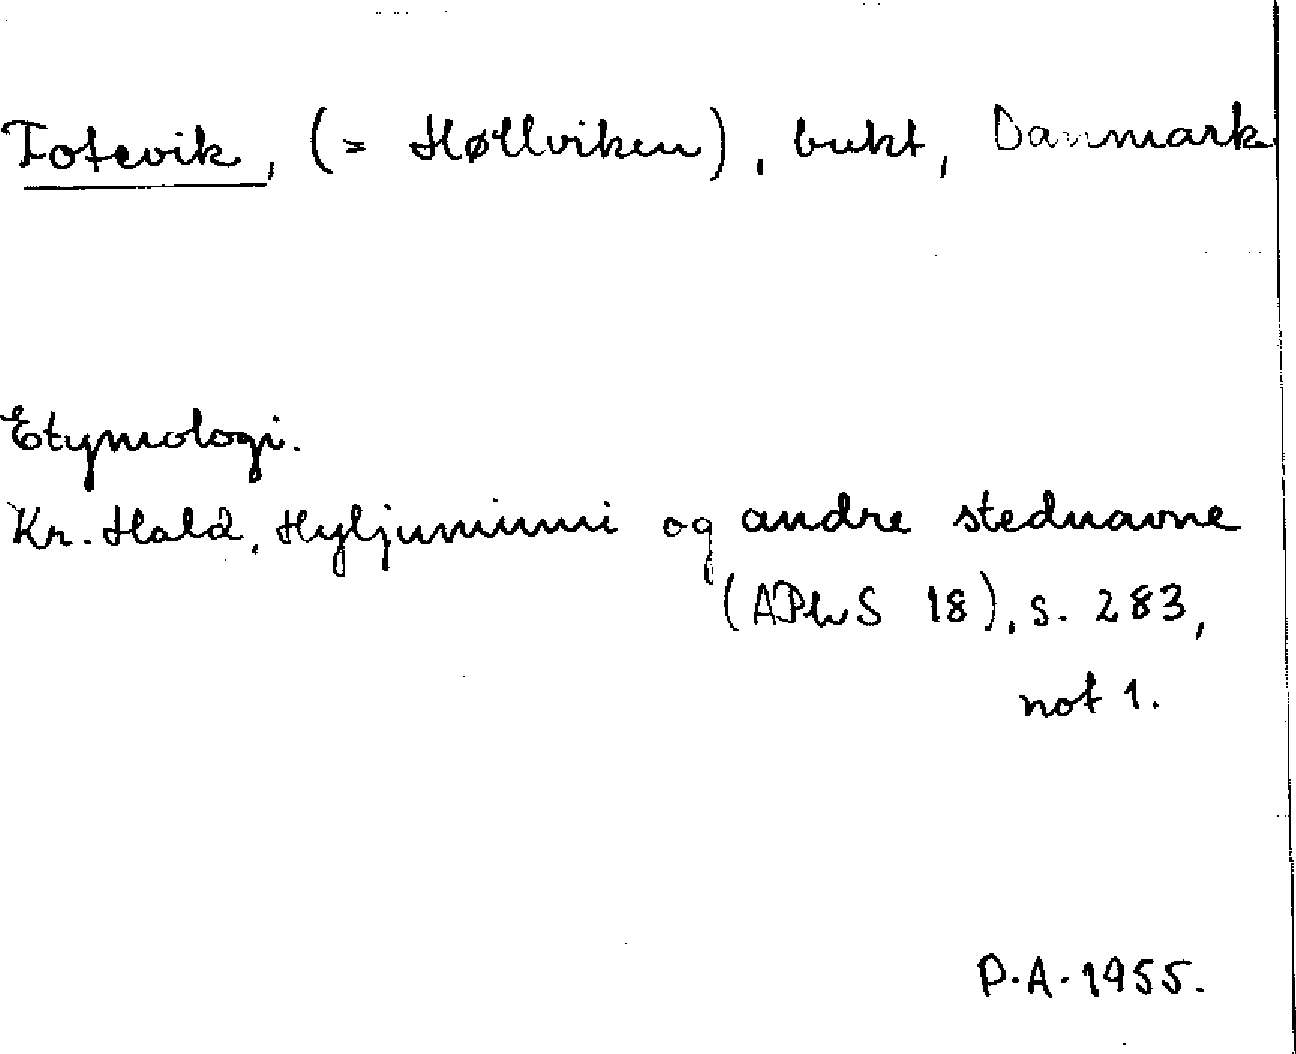 Fotevik, (= Høllviken), bukt, Danmark
Etymologi.
Kr. Hald, Hyljuminni og andre stednavne
(APhS 18), s. 283,
not 1.
P.A. 1955.